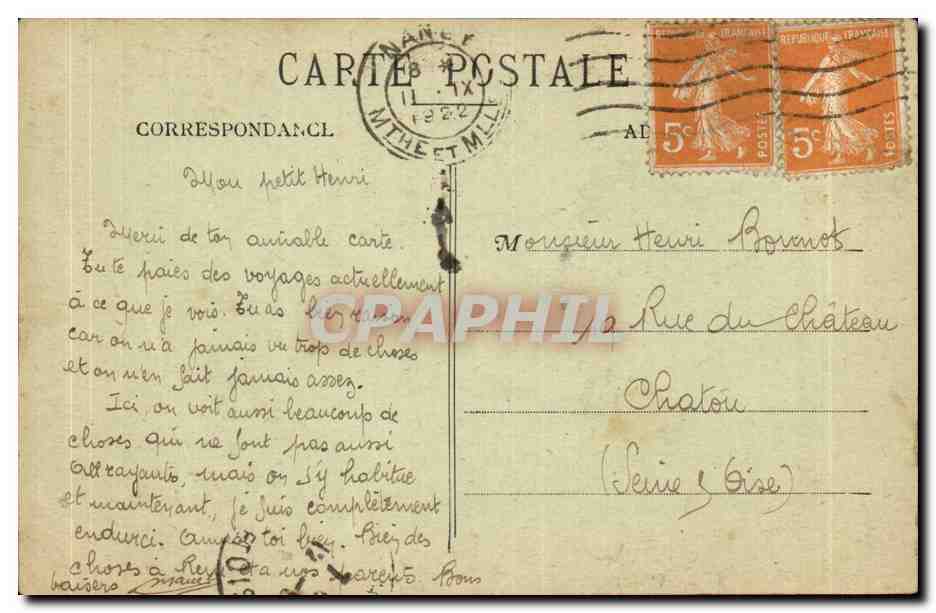 CARTE POSTALE
NANCY
18 *
11 . IX
1922
MTHE ET MLLE
REPUBLIQUE FRANÇAISE
5c POSTES
REPUBLIQUE FRANÇAISE
5c POSTES
CORRESPONDANCE
Mon petit Henri
Merci de ton aimable carte.
Tu te paies des voyages actuellement
à ce que je vois. Tu as bien raison
car on n'a jamais vu trop de choses
et on n'en fait jamais assez.
Ici, on voit aussi beaucoup de
choses qui ne sont pas aussi
attrayantes, mais on s'y habitue
et maintenant, je suis complètement
endurci. toi bien. Bien des
choses à et à nos parents. Bons
baisers
Monsieur Henri Bournot
19 Rue du Château
Chatou
(Seine & Oise)
CPAPHIL